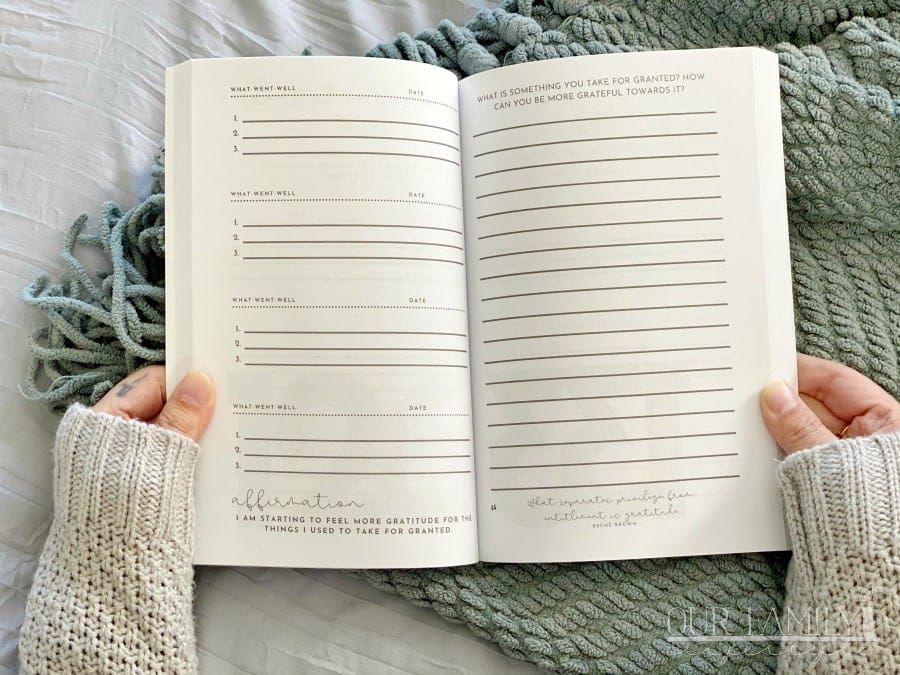 WHAT WENT WELL DATE
1.
2.
3.
WHAT WENT WELL DATE
1.
2.
3.
WHAT WENT WELL DATE
1.
2.
3.
WHAT WENT WELL DATE
1.
2.
3.
affirmation
I AM STARTING TO FEEL MORE GRATITUDE FOR THE
THINGS I USED TO TAKE FOR GRANTED.
WHAT IS SOMETHING YOU TAKE FOR GRANTED? HOW
CAN YOU BE MORE GRATEFUL TOWARDS IT?
“ What separates privilege from
entitlement is gratitude.
BRENÉ BROWN
OUR FAMILY
lifestyle